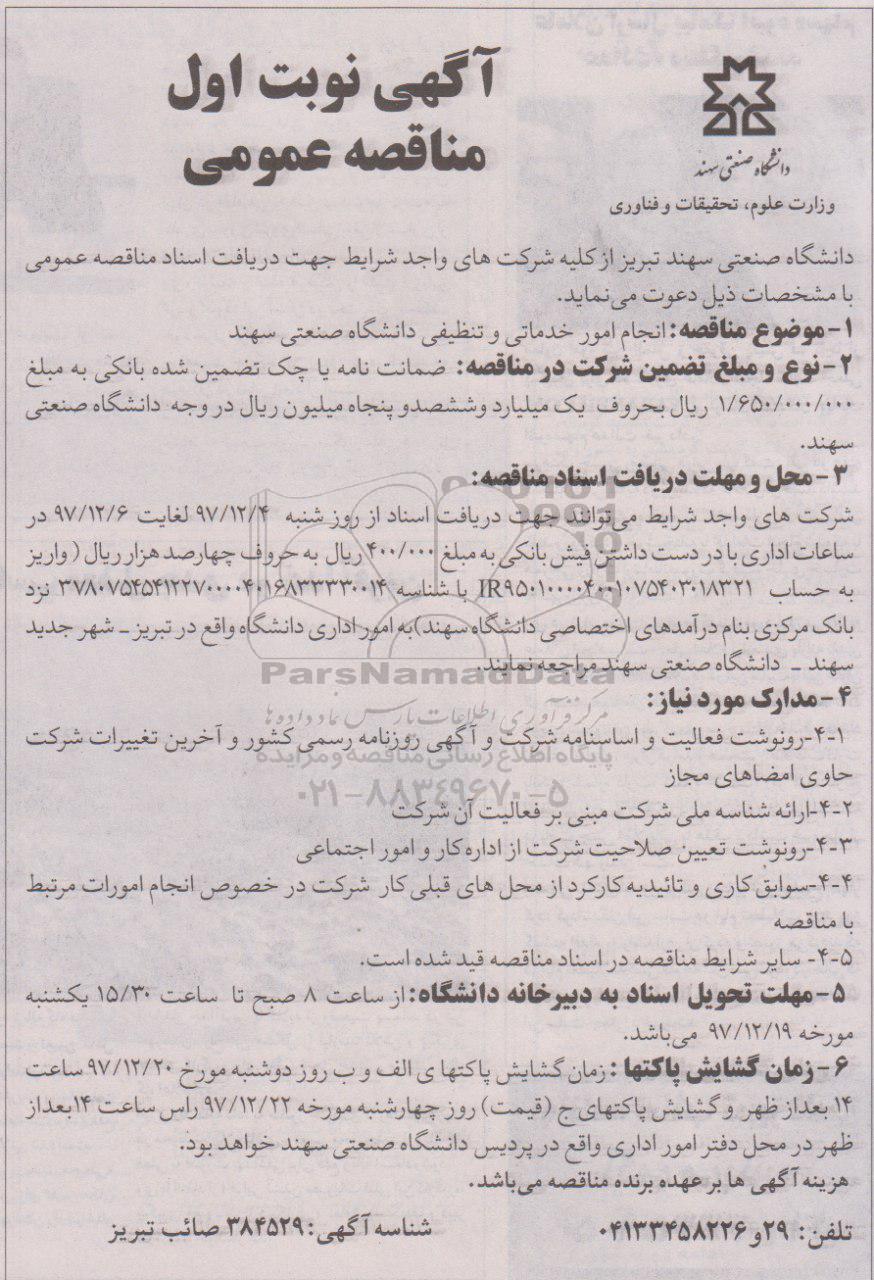 آگهی نوبت اول
مناقصه عمومی
دانشگاه صنعتی سهند
وزارت علوم، تحقیقات و فناوری
دانشگاه صنعتی سهند تبریز از کلیه شرکت های واجد شرایط جهت دریافت اسناد مناقصه عمومی
با مشخصات ذیل دعوت می‌نماید.
۱-موضوع مناقصه: انجام امور خدماتی و تنظیفی دانشگاه صنعتی سهند
۲-نوع و مبلغ تضمین شرکت در مناقصه: ضمانت نامه یا چک تضمین شده بانکی به مبلغ
۱/۶۵۰/۰۰۰/۰۰۰ ریال بحروف یک میلیارد وششصدو پنجاه میلیون ریال در وجه دانشگاه صنعتی
سهند.
۳-محل و مهلت دریافت اسناد مناقصه:
شرکت های واجد شرایط می‌توانند جهت دریافت اسناد از روز شنبه ۹۷/۱۲/۴ لغایت ۹۷/۱۲/۶ در
ساعات اداری با در دست داشتن فیش بانکی به مبلغ ۴۰۰/۰۰۰ ریال به حروف چهارصد هزار ریال (واریز
به حساب IR۹۵۰۱۰۰۰۰۴۰۰۱۰۷۵۴۰۳۰۱۸۳۲۱ با شناسه ۳۷۸۰۷۵۴۵۴۱۲۲۷۰۰۰۰۴۰۱۶۸۳۳۳۳۰۰۱۴ نزد
بانک مرکزی بنام درآمدهای اختصاصی دانشگاه سهند)به امور اداری دانشگاه واقع در تبریز ـ شهر جدید
سهند ـ دانشگاه صنعتی سهند مراجعه نمایند.
ParsNamadData
۴-مدارک مورد نیاز:
مرکز فرآوری اطلاعات پارس نماد داده ها
۴-۱-رونوشت فعالیت و اساسنامه شرکت و آگهی روزنامه رسمی کشور و آخرین تغییرات شرکت
پایگاه اطلاع رسانی مناقصه و مزایده
حاوی امضاهای مجاز
۰۲۱-۸۸۳۴۹۶۷۰-۵
۴-۲-ارائه شناسه ملی شرکت مبنی بر فعالیت آن شرکت
۴-۳-رونوشت تعیین صلاحیت شرکت از اداره کار و امور اجتماعی
۴-۴-سوابق کاری و تائیدیه کارکرد از محل های قبلی کار شرکت در خصوص انجام امورات مرتبط
با مناقصه
۴-۵- سایر شرایط مناقصه در اسناد مناقصه قید شده است.
۵-مهلت تحویل اسناد به دبیرخانه دانشگاه: از ساعت ۸ صبح تا ساعت ۱۵/۳۰ یکشنبه
مورخه ۹۷/۱۲/۱۹ می‌باشد.
۶-زمان گشایش پاکتها : زمان گشایش پاکتها ی الف و ب روز دوشنبه مورخ ۹۷/۱۲/۲۰ ساعت
۱۴ بعداز ظهر و گشایش پاکتهای ج (قیمت) روز چهارشنبه مورخه ۹۷/۱۲/۲۲ راس ساعت ۱۴بعداز
ظهر در محل دفتر امور اداری واقع در پردیس دانشگاه صنعتی سهند خواهد بود.
هزینه آگهی ها بر عهده برنده مناقصه می‌باشد.
تلفن: ۲۹و ۰۴۱۳۳۴۵۸۲۲۶ شناسه آگهی: ۳۸۴۵۲۹ صائب تبریز